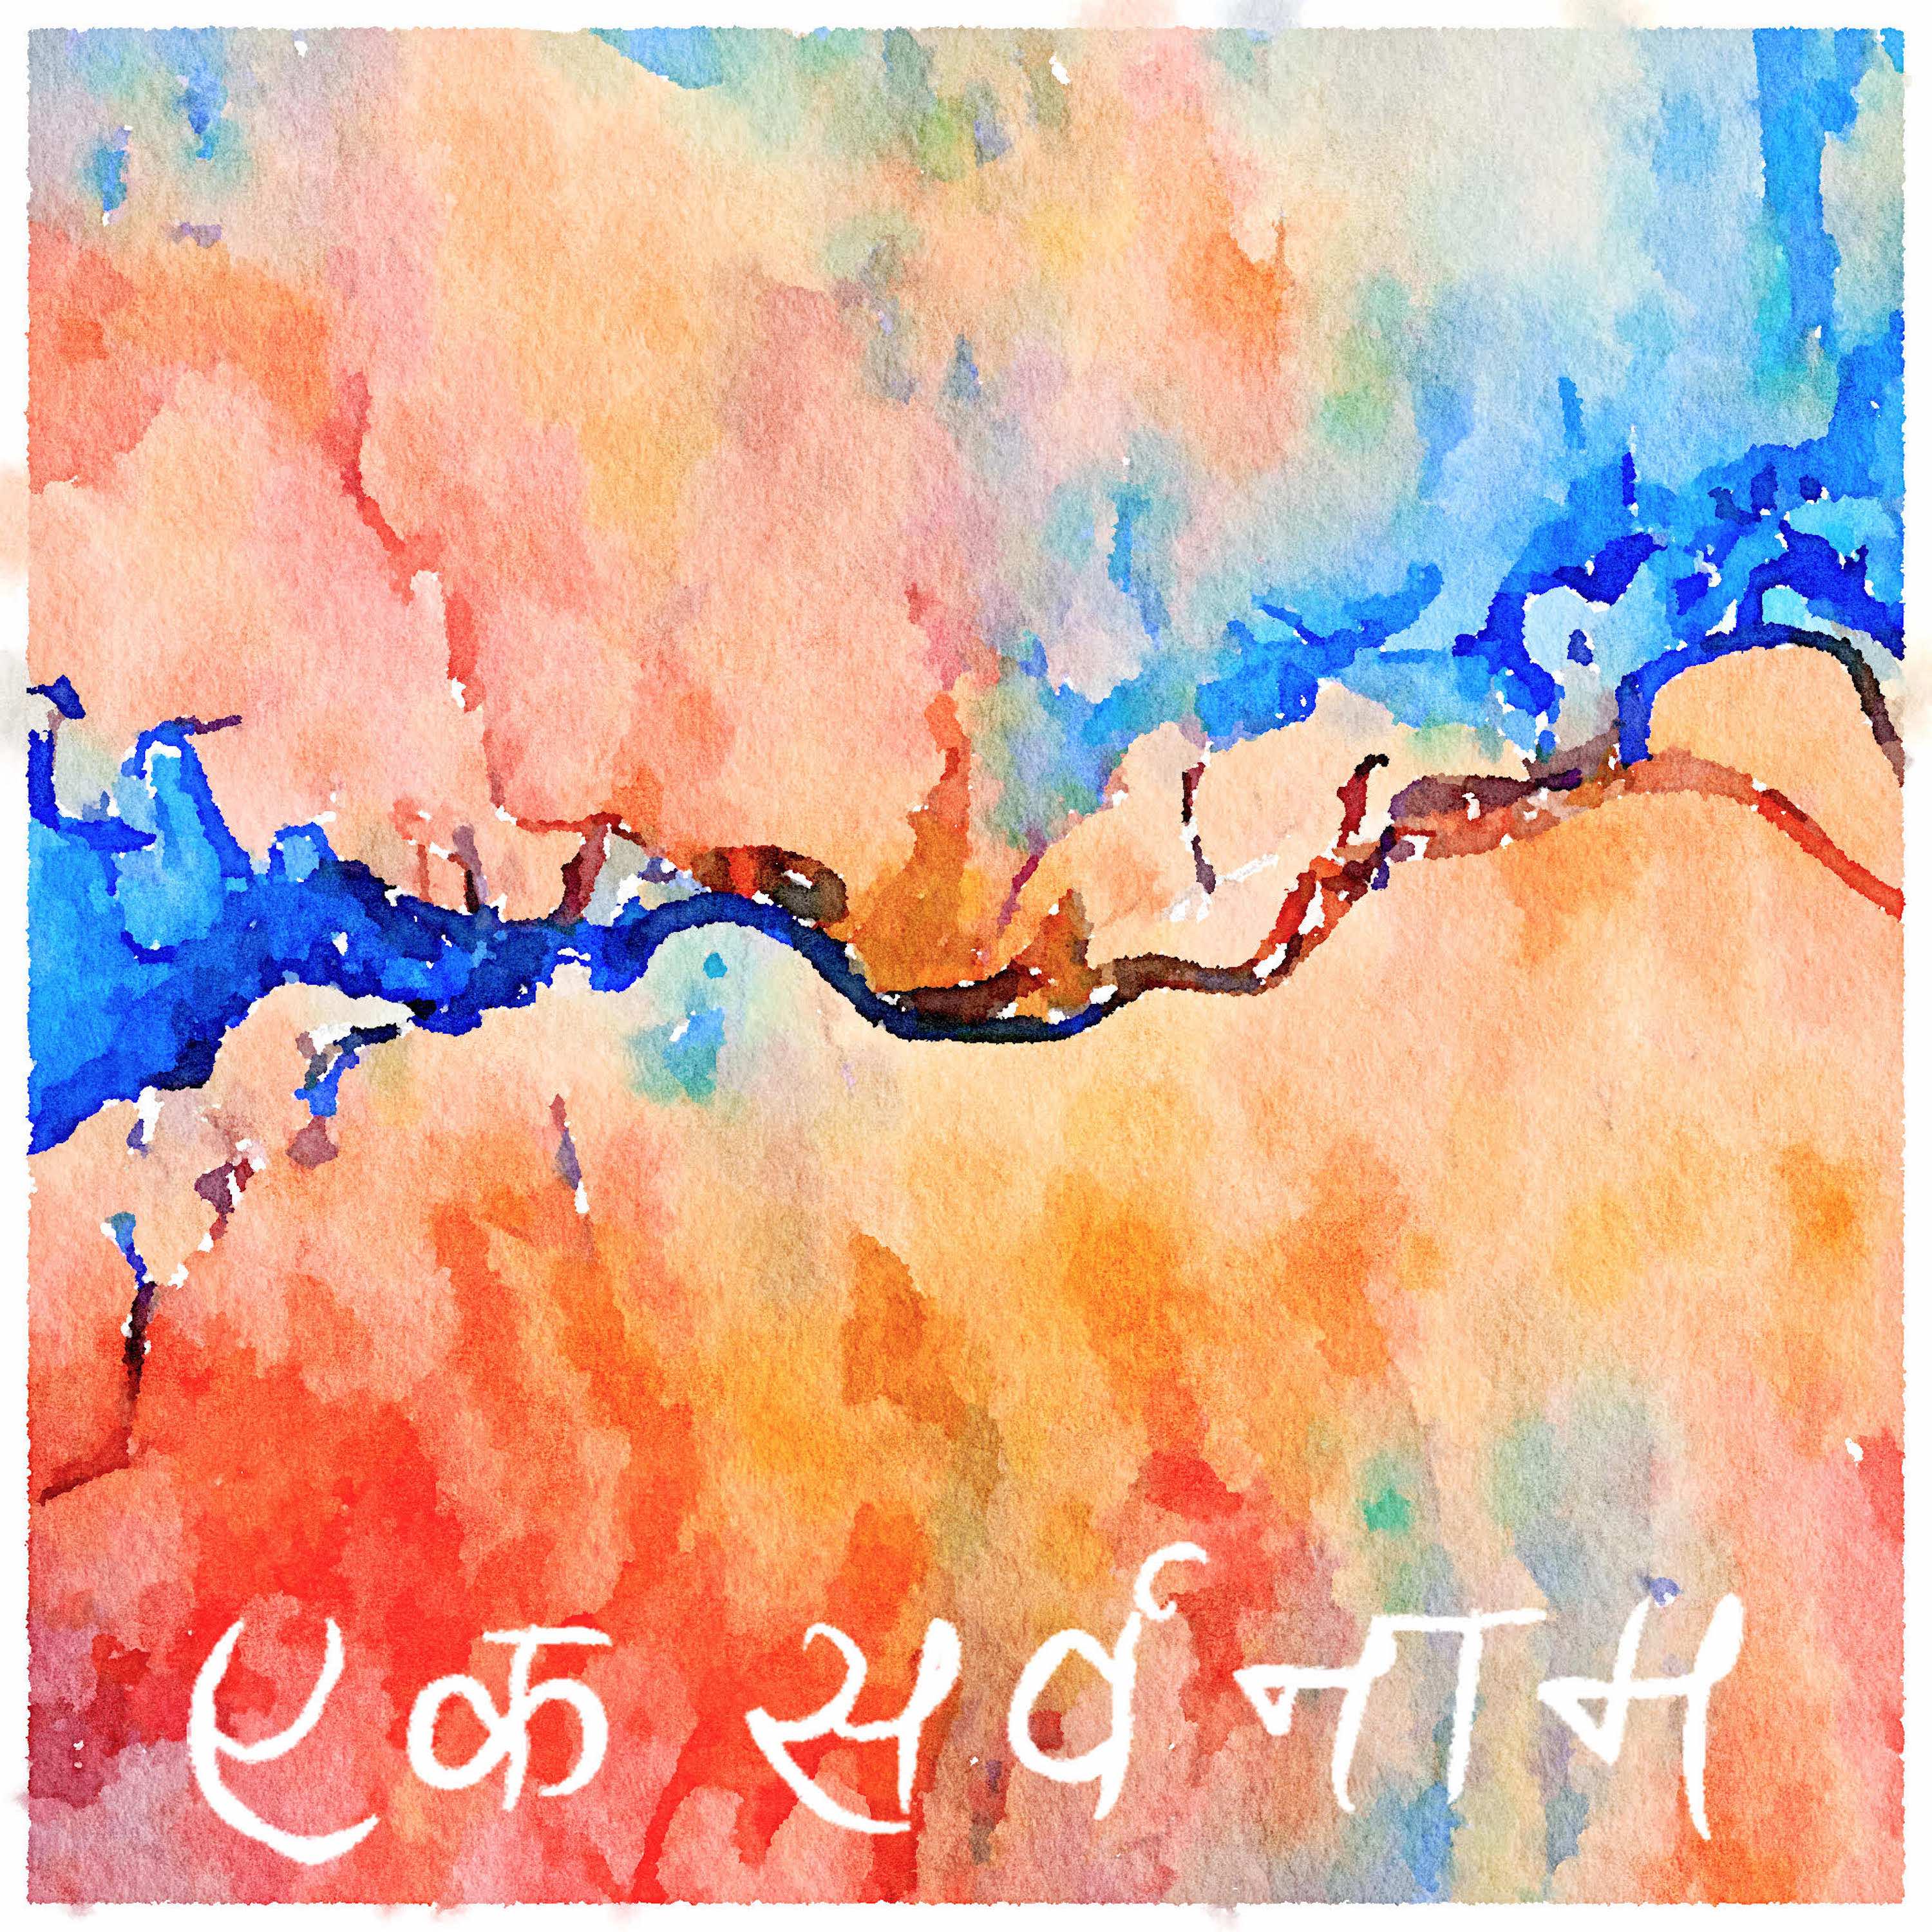 एक सर्वनाम